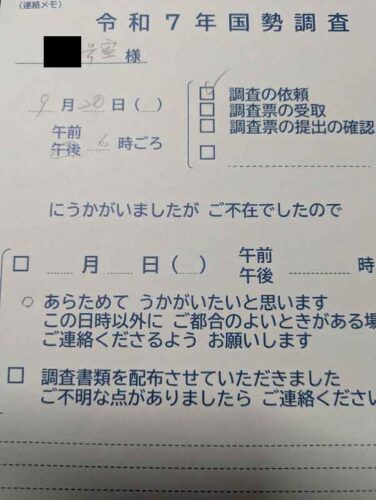 （連絡メモ）
令和７年国勢調査
号室 様
9月20日（ ）
午前
午後 6時ごろ
☑ 調査の依頼
□ 調査票の受取
□ 調査票の提出の確認
□
にうかがいましたが ご不在でしたので
□ 月 日（ ） 午前
午後 時
○ あらためて うかがいたいと思います
この日時以外に ご都合のよいときがある場
ご連絡くださるよう お願いします
□ 調査書類を配布させていただきました
ご不明な点がありましたら ご連絡ください